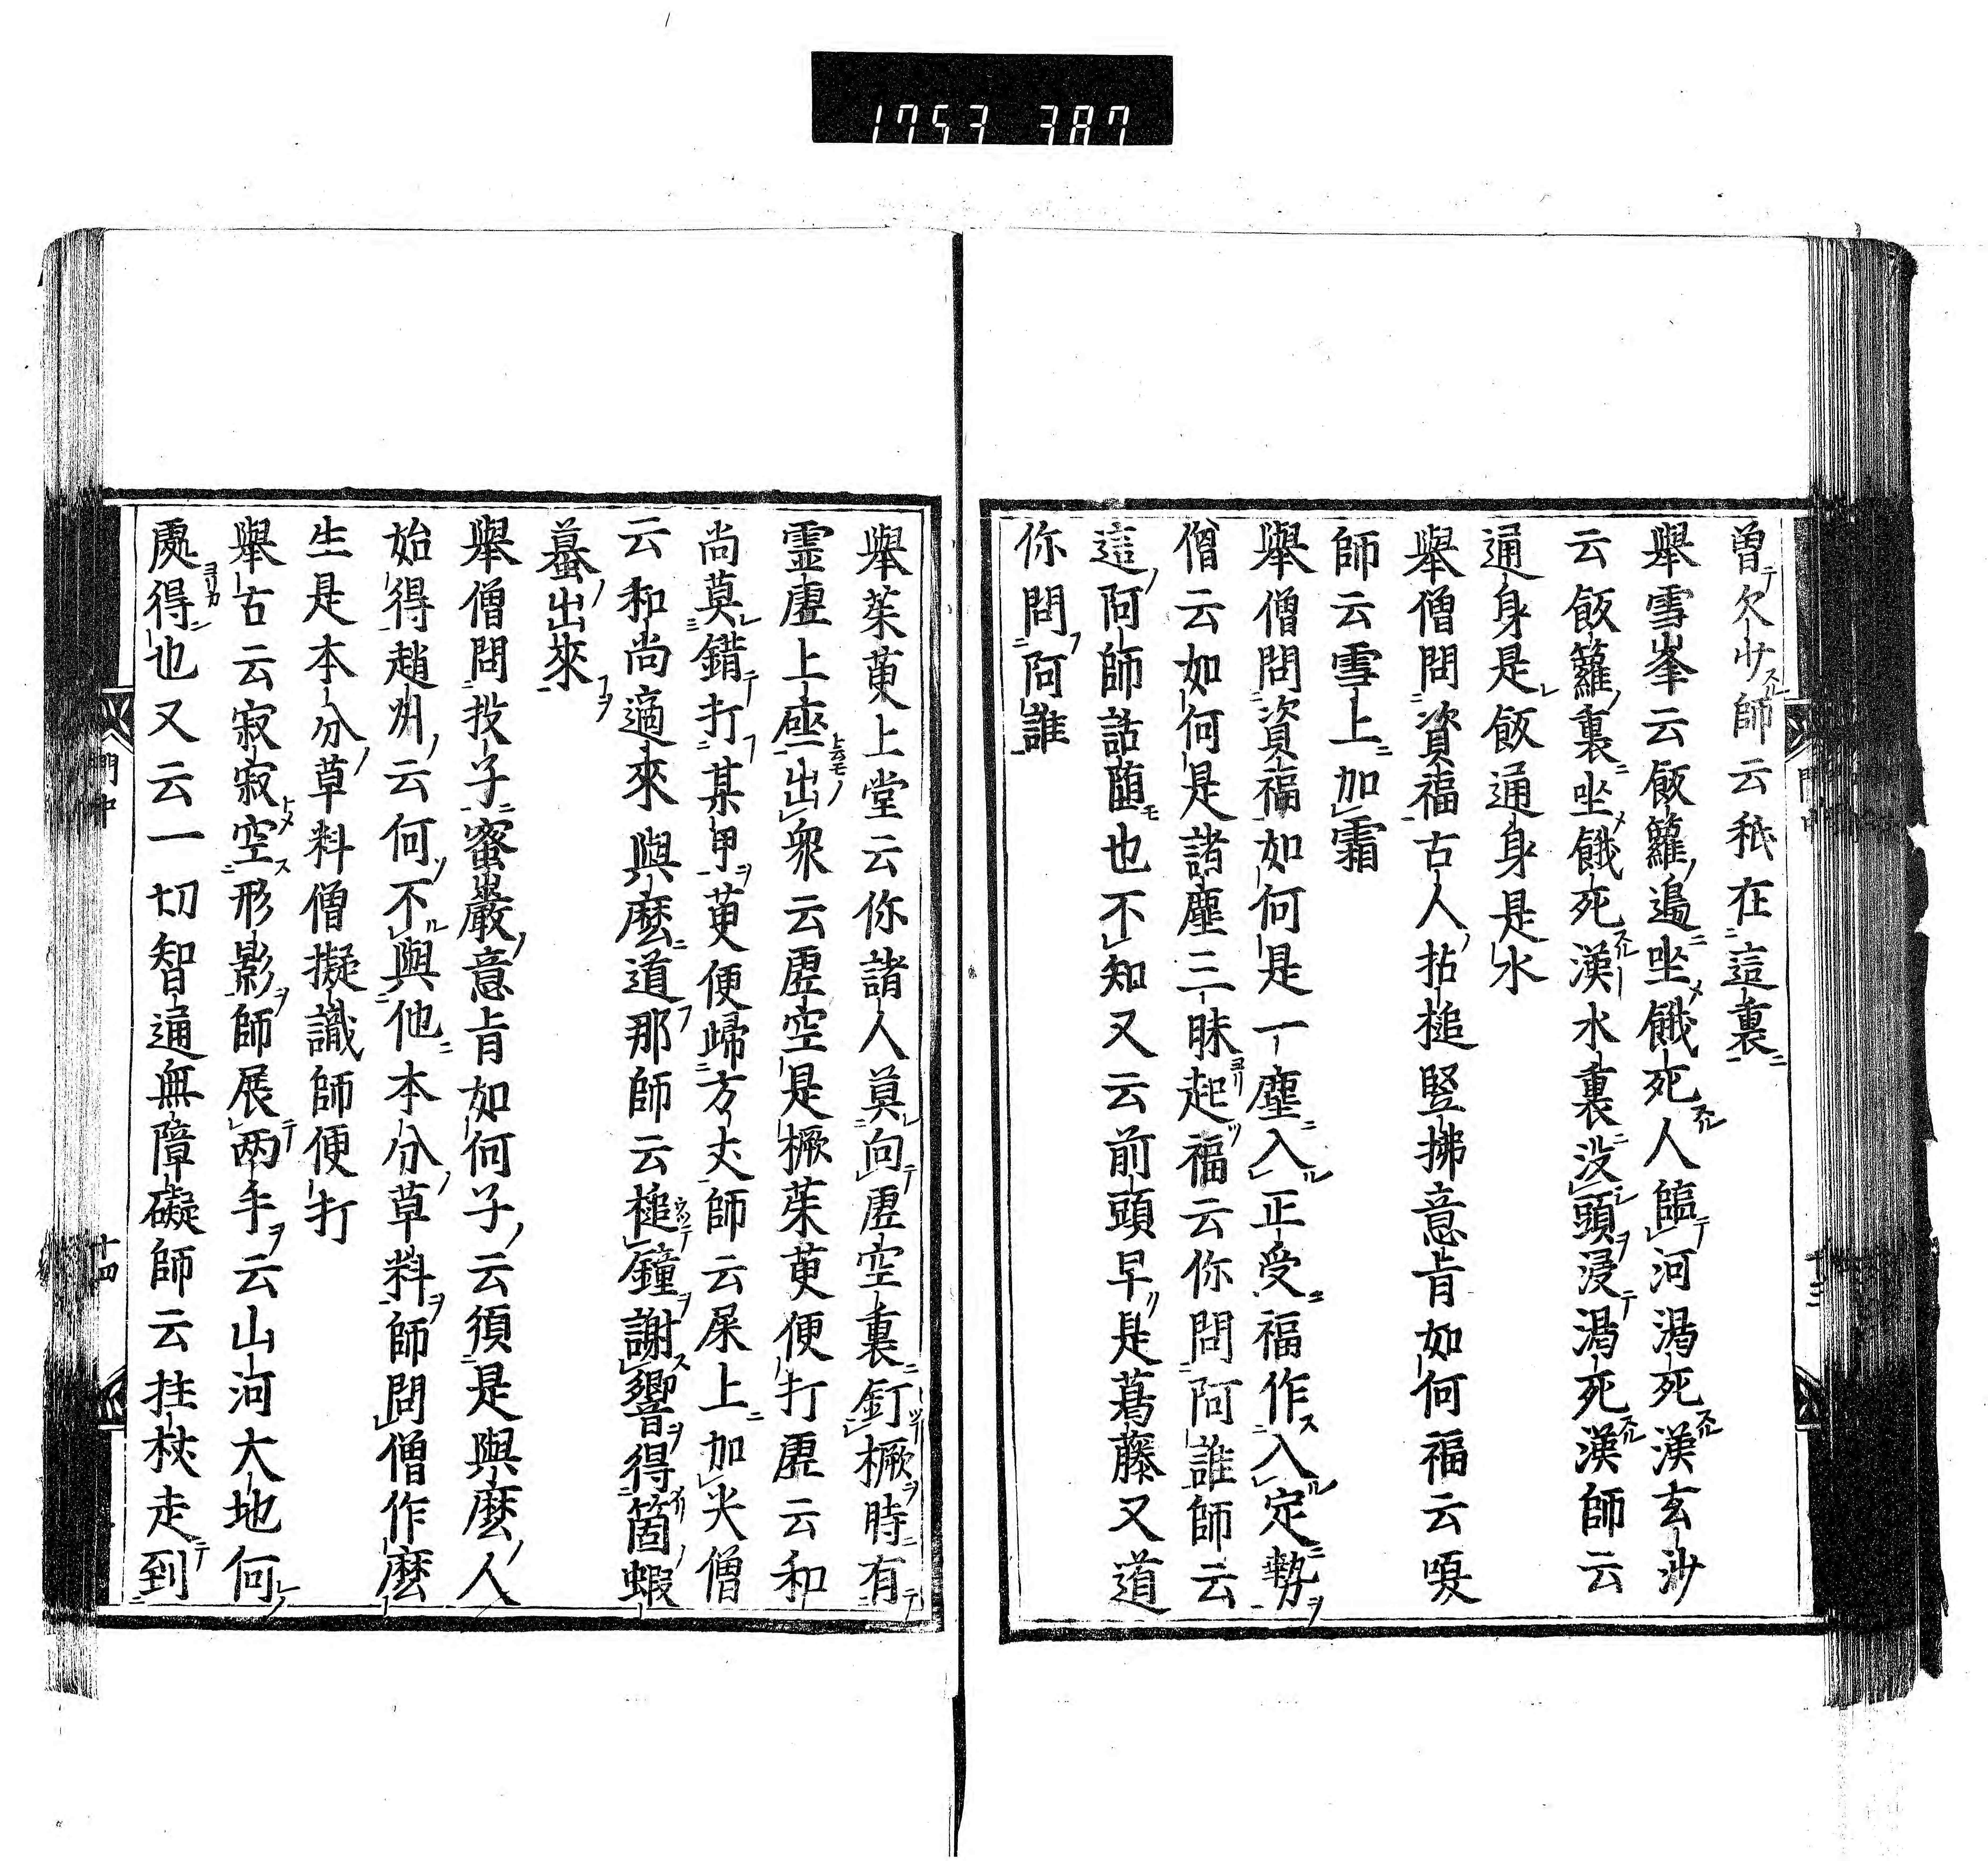 1753 387
曽欠少師云秖在這裏
舉雪峯云飯籮邉坐餓死人臨河渇死漢玄沙
云飯籮裏坐餓死漢水裏没頭浸渇死漢師云
通身是飯通身是水
舉僧問資福古人拈槌竪拂意旨如何福云嗄
師云雪上加霜
舉僧問資福如何是一塵入正受福作入定勢
僧云如何是諸塵三昧起福云你問阿誰師云
這阿師話墮也不知又云前頭早是葛藤又道
你問阿誰
舉茱萸上堂云你諸人莫向虚空裏釘橛時有
靈虚上座出衆云虚空是橛茱萸便打虚云和
尚莫錯打某甲萸便歸方丈師云屎上加尖僧
云和尚適來與麽道那師云槌鐘謝響得箇蝦
蟇出來
舉僧問投子蜜巖意旨如何子云須是與麽人
始得趙州云何不與他本分草料師問僧作麽
生是本分草料僧擬議師便打
舉古云寂寂空形影師展两手云山河大地何
處得也又云一切智通無障礙師云拄杖走到
門中
十四